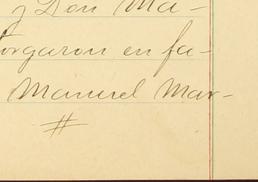 y Don Ma-
orgaron en fa-
Manuel Mar-
#